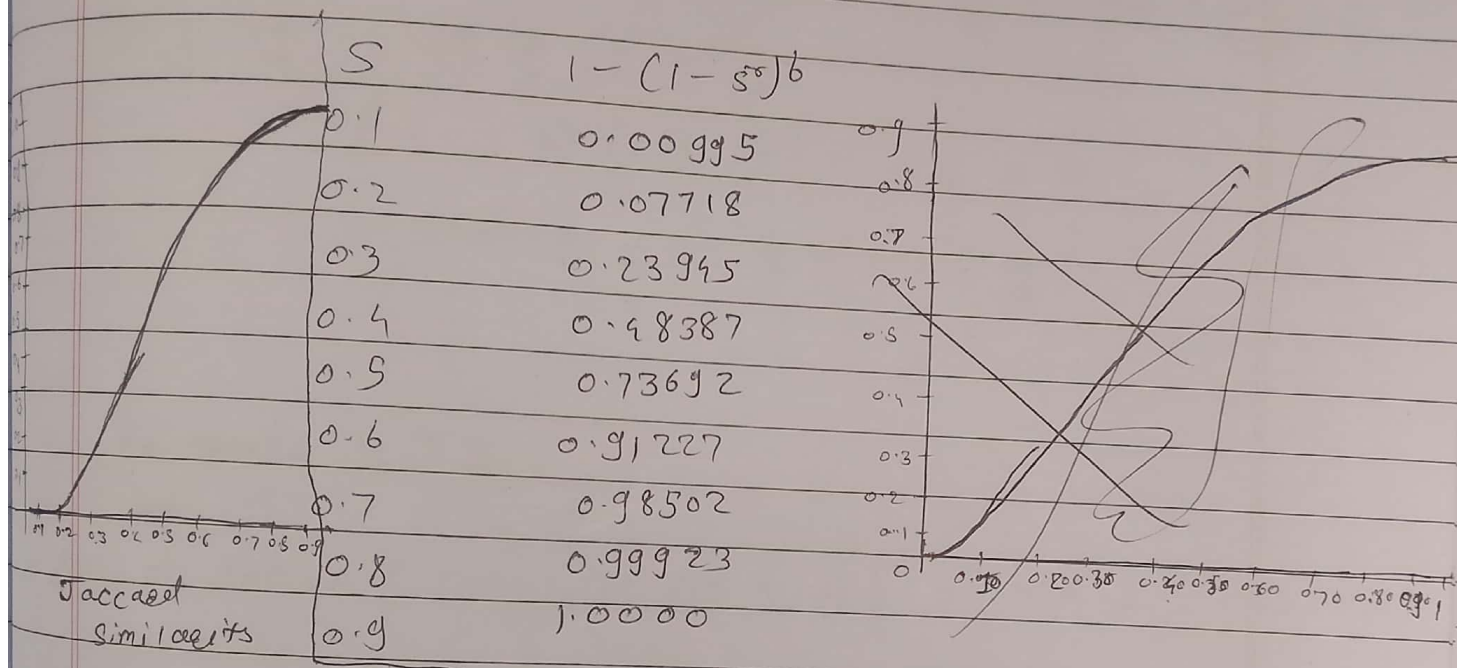 S 1 - (1 - s^r)^b
0.1 0.00995
0.2 0.07718
0.3 0.23945
0.4 0.48387
0.5 0.73692
0.6 0.91227
0.7 0.98502
0.8 0.99923
0.9 1.0000
0.2 0.3 0.4 0.5 0.6 0.7 0.8 0.9
Jaccard
Similarity
0.9
0.8
0.7
0.6
0.5
0.4
0.3
0.2
0.1
0 0.20 0.30 0.60 0.70 0.80